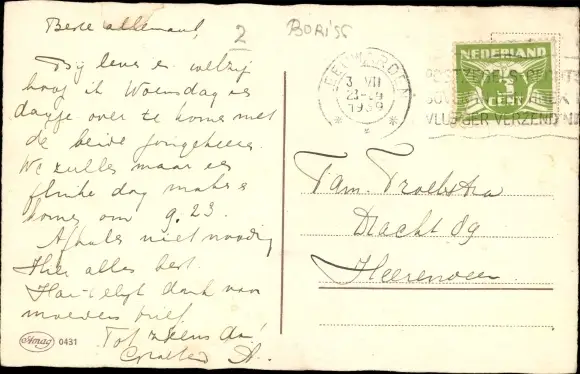 Beste allemaal,
2
BORI'SS
Bij leven en welzijn
hoop ik Woensdag een
dagje over te komen met
de beide jongeheren.
We zullen maar een
flinke dag maken
komen om 9.23.
Afhalen niet noodig
Hier alles best.
Hartelijk dank voor
moeders brief
Tot ziens dan!
LEEUWARDEN
3 VII
23-19
1939
NEDERLAND
3
CENT
POSTZEGELS RECHTS
BOVEN
VLUGGER VERZENDING
Fam. Troelstra
Dracht 89
Heerenveen
Amag 0431